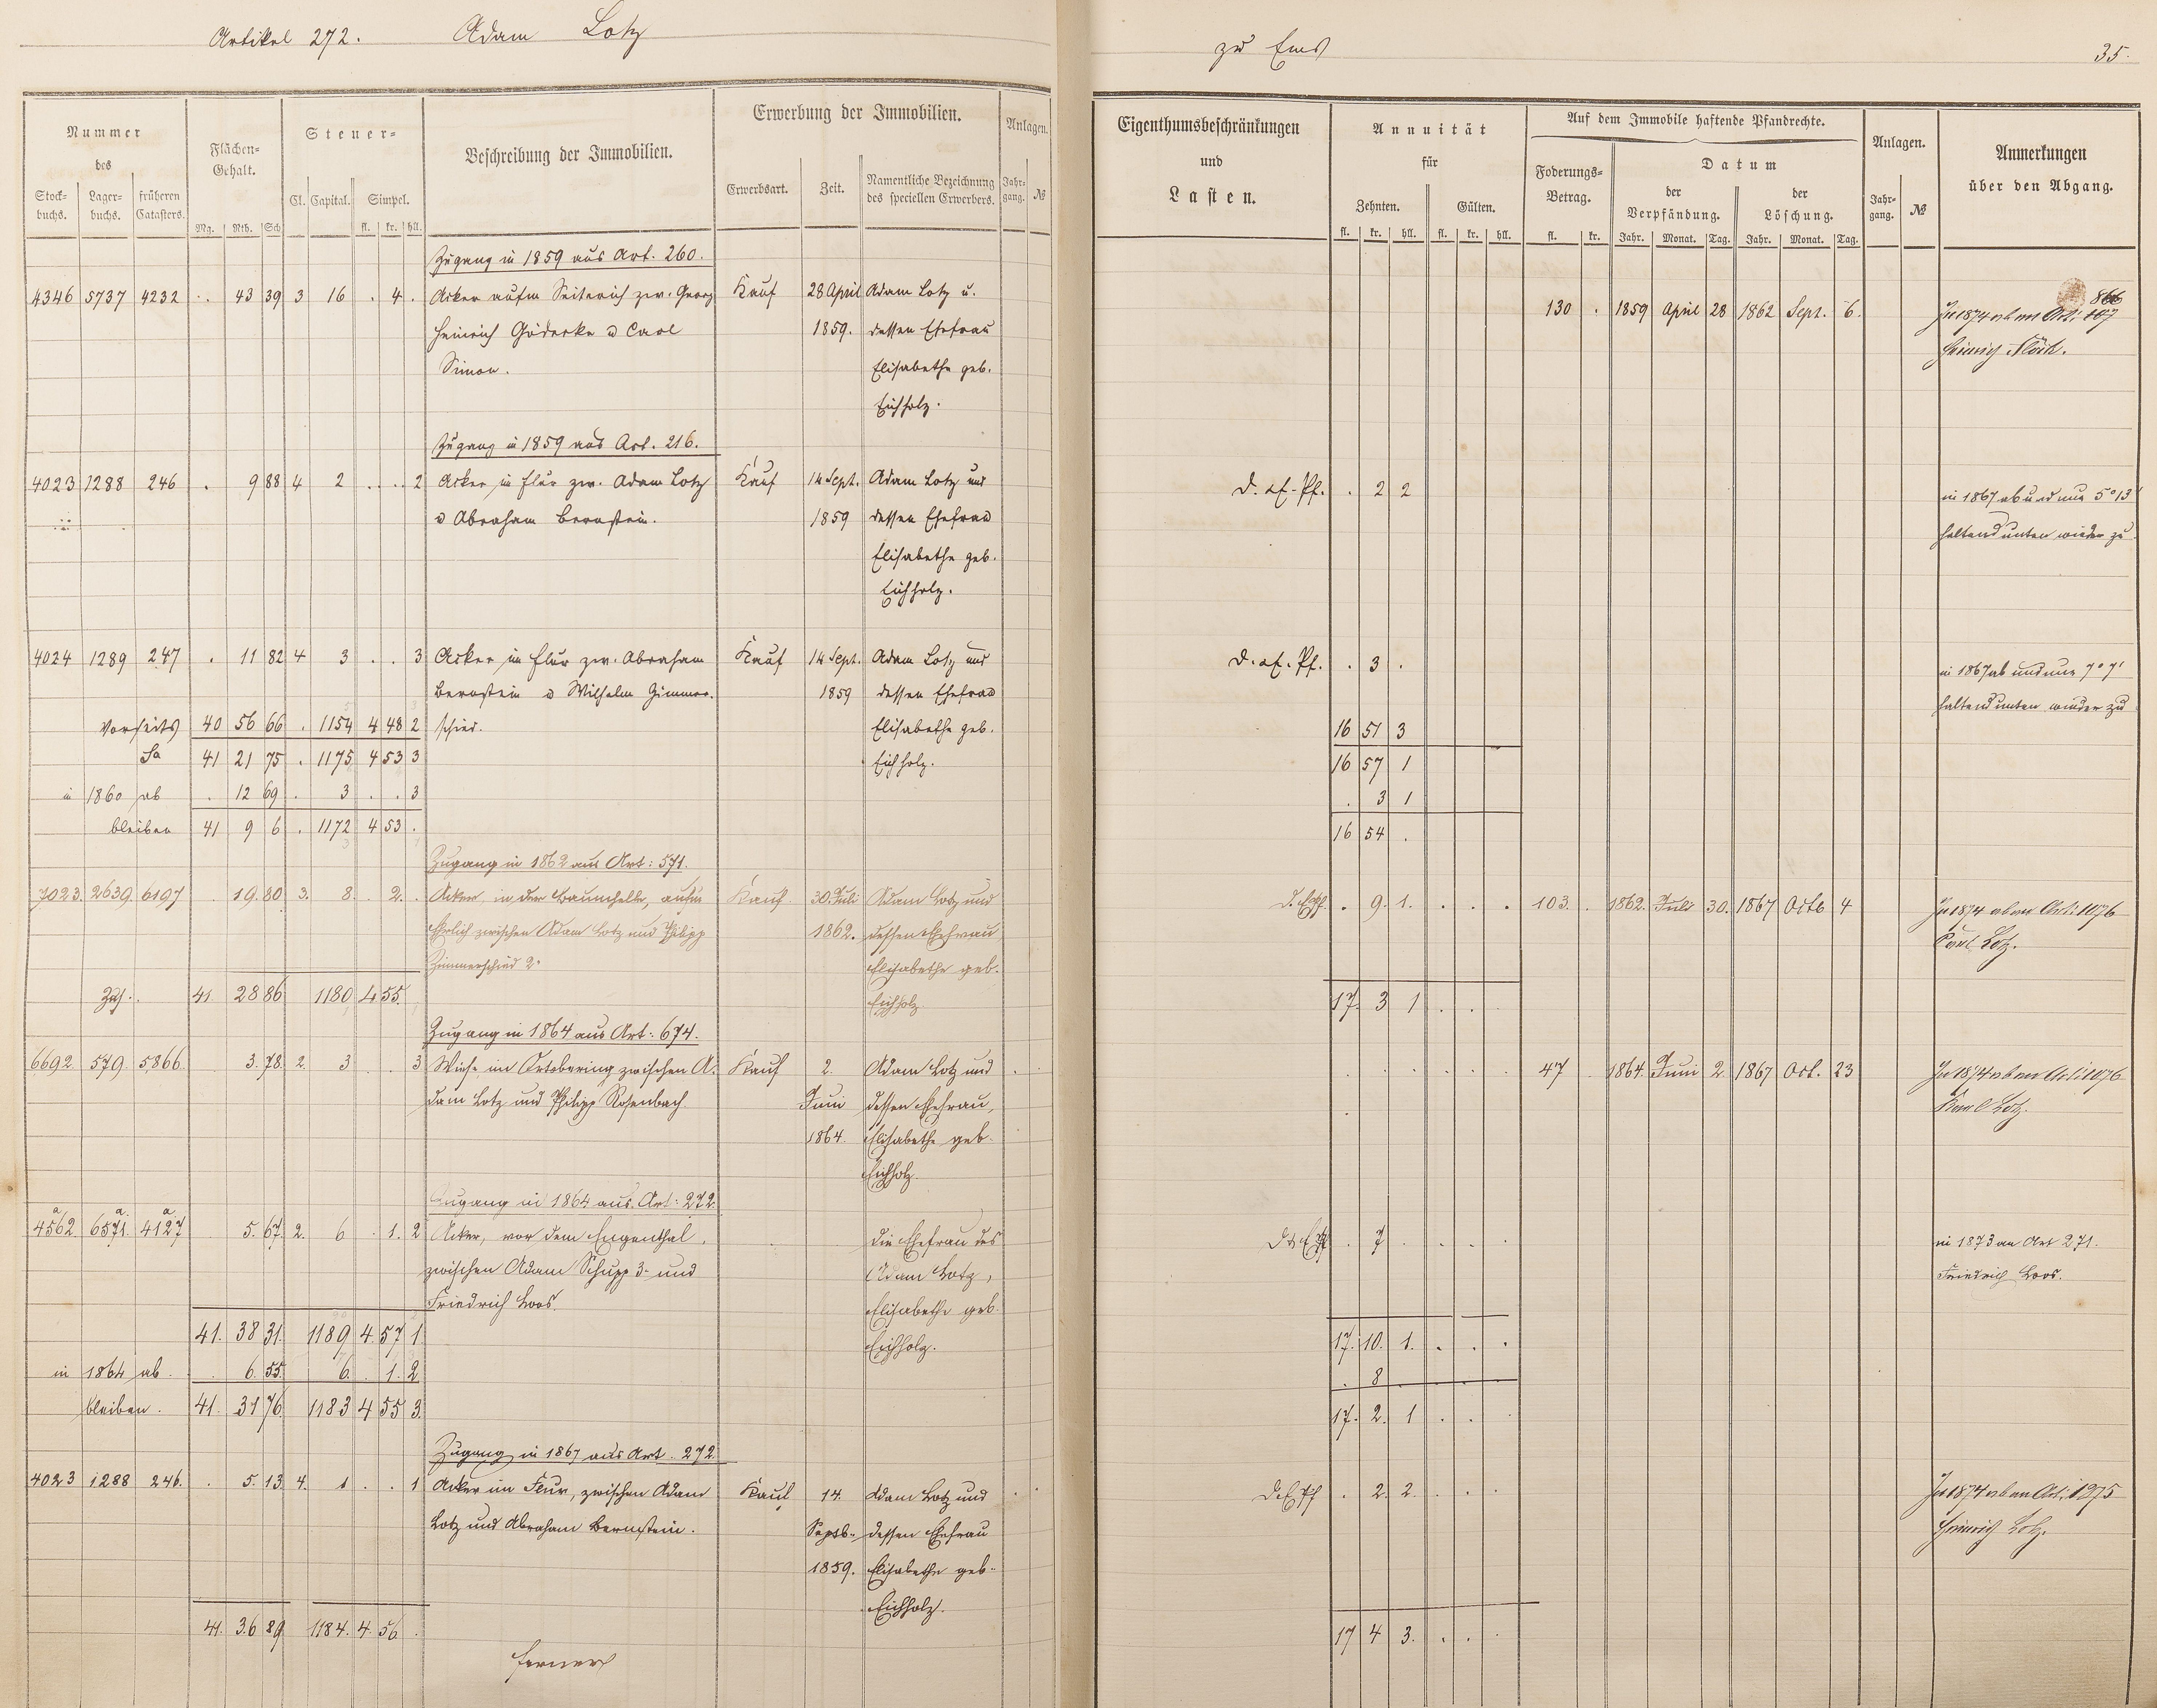 Artikel 272. Adam Lotz
zu Ems 35.
Nummer
des
Stock-
buchs.
Lager-
buchs.
früheren
Catasters.
Flächen-
Gehalt.
Mg. Rth. Sch
Steuer-
Cl. Capital. Simpel.
fl. kr. hll.
Beschreibung der Immobilien.
Erwerbung der Immobilien.
Erwerbsart. Zeit.
Namentliche Bezeichnung
des speciellen Erwerbers.
Anlagen.
Jahr-
gang. №
Eigenthumsbeschränkungen
und
Lasten.
Annuität
für
Zehnten. Gülten.
fl. kr. hll. fl. kr. hll.
Auf dem Immobile haftende Pfandrechte.
Foderungs-
Betrag.
fl. kr.
Datum
der
Verpfändung.
Jahr. Monat. Tag.
der
Löschung.
Jahr. Monat. Tag.
Anlagen.
Jahr-
gang. №
Anmerkungen
über den Abgang.
Zugang in 1859 aus Art. 260.
4346 5737 4232 . 43 39 3 16 . 4 . Acker aufm Seiterich zw. Georg Kauf 28 April Adam Lotz u. 130 . 1859 April 28 1862 Sept. 6. In 1874 ab an Art. 866
Heinrich Göderke u Carl 1859. dessen Ehefrau Heinrich
Simon. Elisabethe geb.
Eichholz.
Zugang in 1859 aus Art. 216.
4023 1288 246 . 9 88 4 2 . . 2 Acker in Flur zw. Adam Lotz Kauf 14 Sept. Adam Lotz und . 2 2 in 1867 ab und nur 5° 13'
u Abraham Bernstein. 1859 dessen Ehefrau haltend unten wieder zu
Elisabethe geb.
Eichholz.
4024 1289 247 . 11 82 4 3 . . 3 Acker im Flur zw. Abraham Kauf 14 Sept. Adam Lotz und . 3 . in 1867 ab und nur 7° 7'
Bernstein u Wilhelm Zimmer- 1859 dessen Ehefrau haltend unten wieder zu
Vorseits 40 56 66 . 1154 4 48 2 schied. Elisabethe geb. 16 51 3
Sa 41 21 75 . 1175 4 53 3 Eichholz. 16 57 1
in 1860 ab . 12 69 . 3 . . 3 . 3 1
bleiben 41 9 6 . 1172 4 53 . 16 54 .
Zugang in 1862 aus Art: 571.
7023. 2639. 6197 . 19. 80 3. 8. . 2. . Acker, in der Baumhelle, aufm Kauf. 30. Juli Adam Lotz und . 9. 1. . . . 103. . 1862. Juli 30. 1867 Octb 4 In 1874 ab an Art: 1076
zwischen Adam Lotz und Philipp 1862. dessen Ehefrau Karl Lotz.
Zimmerschied 2r Elisabethe geb.
Zus. 41 28 86 1180 4 55. Eichholz. 17. 3 1 . .
Zugang in 1864 aus Art: 674.
6692. 579. 5866. . 3. 78. 2. 3 . . 3 Wiese, im Ortobering zwischen A- Kauf 2. Adam Lotz und 47 . 1864. Juni 2. 1867 Oct. 23 In 1874 ab an Art: 1076
dam Lotz und Philipp Rosenbach Juni dessen Ehefrau, Karl Lotz.
1864. Elisabethe geb.
Eichholz.
Zugang in 1864 aus Art: 272.
a a. a.
4562 6571. 4127 . 5. 67. 2. 6 . 1. 2 Acker, vor dem Engenthal, die Ehefrau des . 7 . . . . in 1873 an Art 271.
zwischen Adam Schupp 3r und Adam Lotz, Friedrich Loos.
Friedrich Loos. Elisabethe geb.
41. 38 31. 1189 4. 57 1. Eichholz. 17. 10. 1. . . .
in 1864 ab . 6. 55. 6. 1. 2. . 8
bleiben. 41. 31 76. 1183 4 55 3. 17. 2. 1 . . .
Zugang in 1867 aus Art. 272
4023 1288 246. . 5. 13. 4. 1 . . 1 Acker im Flur, zwischen Adam Kauf 14. Adam Lotz und . 2. 2. . . . In 1874 ab an Art: 1075
Lotz und Abraham Bernstein. Septb. dessen Ehefrau Heinrich Lotz.
1859. Elisabethe geb.
Eichholz.
41. 36 89 1184. 4. 56. . 17 4 3. . . .
ferner